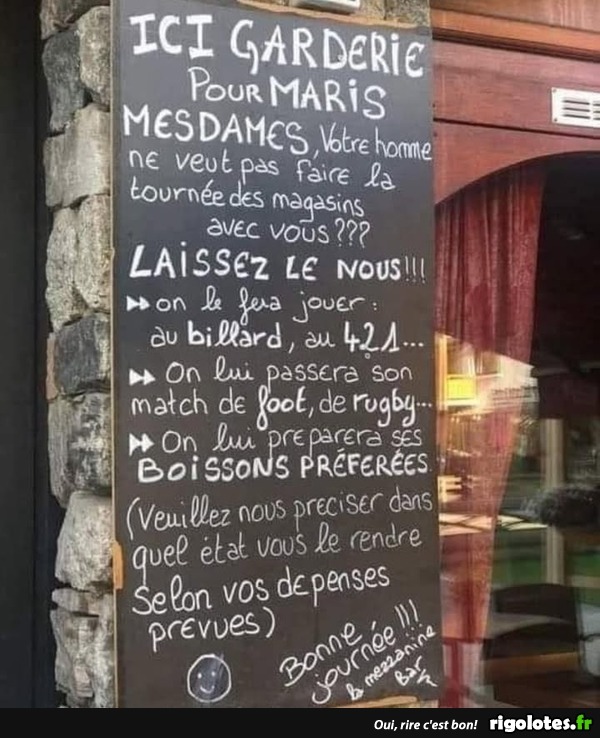 ICI GARDERIE
POUR MARIS
MESDAMES, Votre homme
ne veut pas faire la
tournée des magasins
avec vous ???
LAISSEZ LE NOUS!!!
on le fera jouer :
au billard, au 421...
On lui passera son
match de foot, de rugby...
On lui preparera ses
BOISSONS PRÉFERÉES.
(Veuillez nous preciser dans
quel état vous le rendre
Selon vos depenses
prevues)
Bonne
journée !!!
la mezzanine
Bar
Oui, rire c'est bon! rigolotes.fr